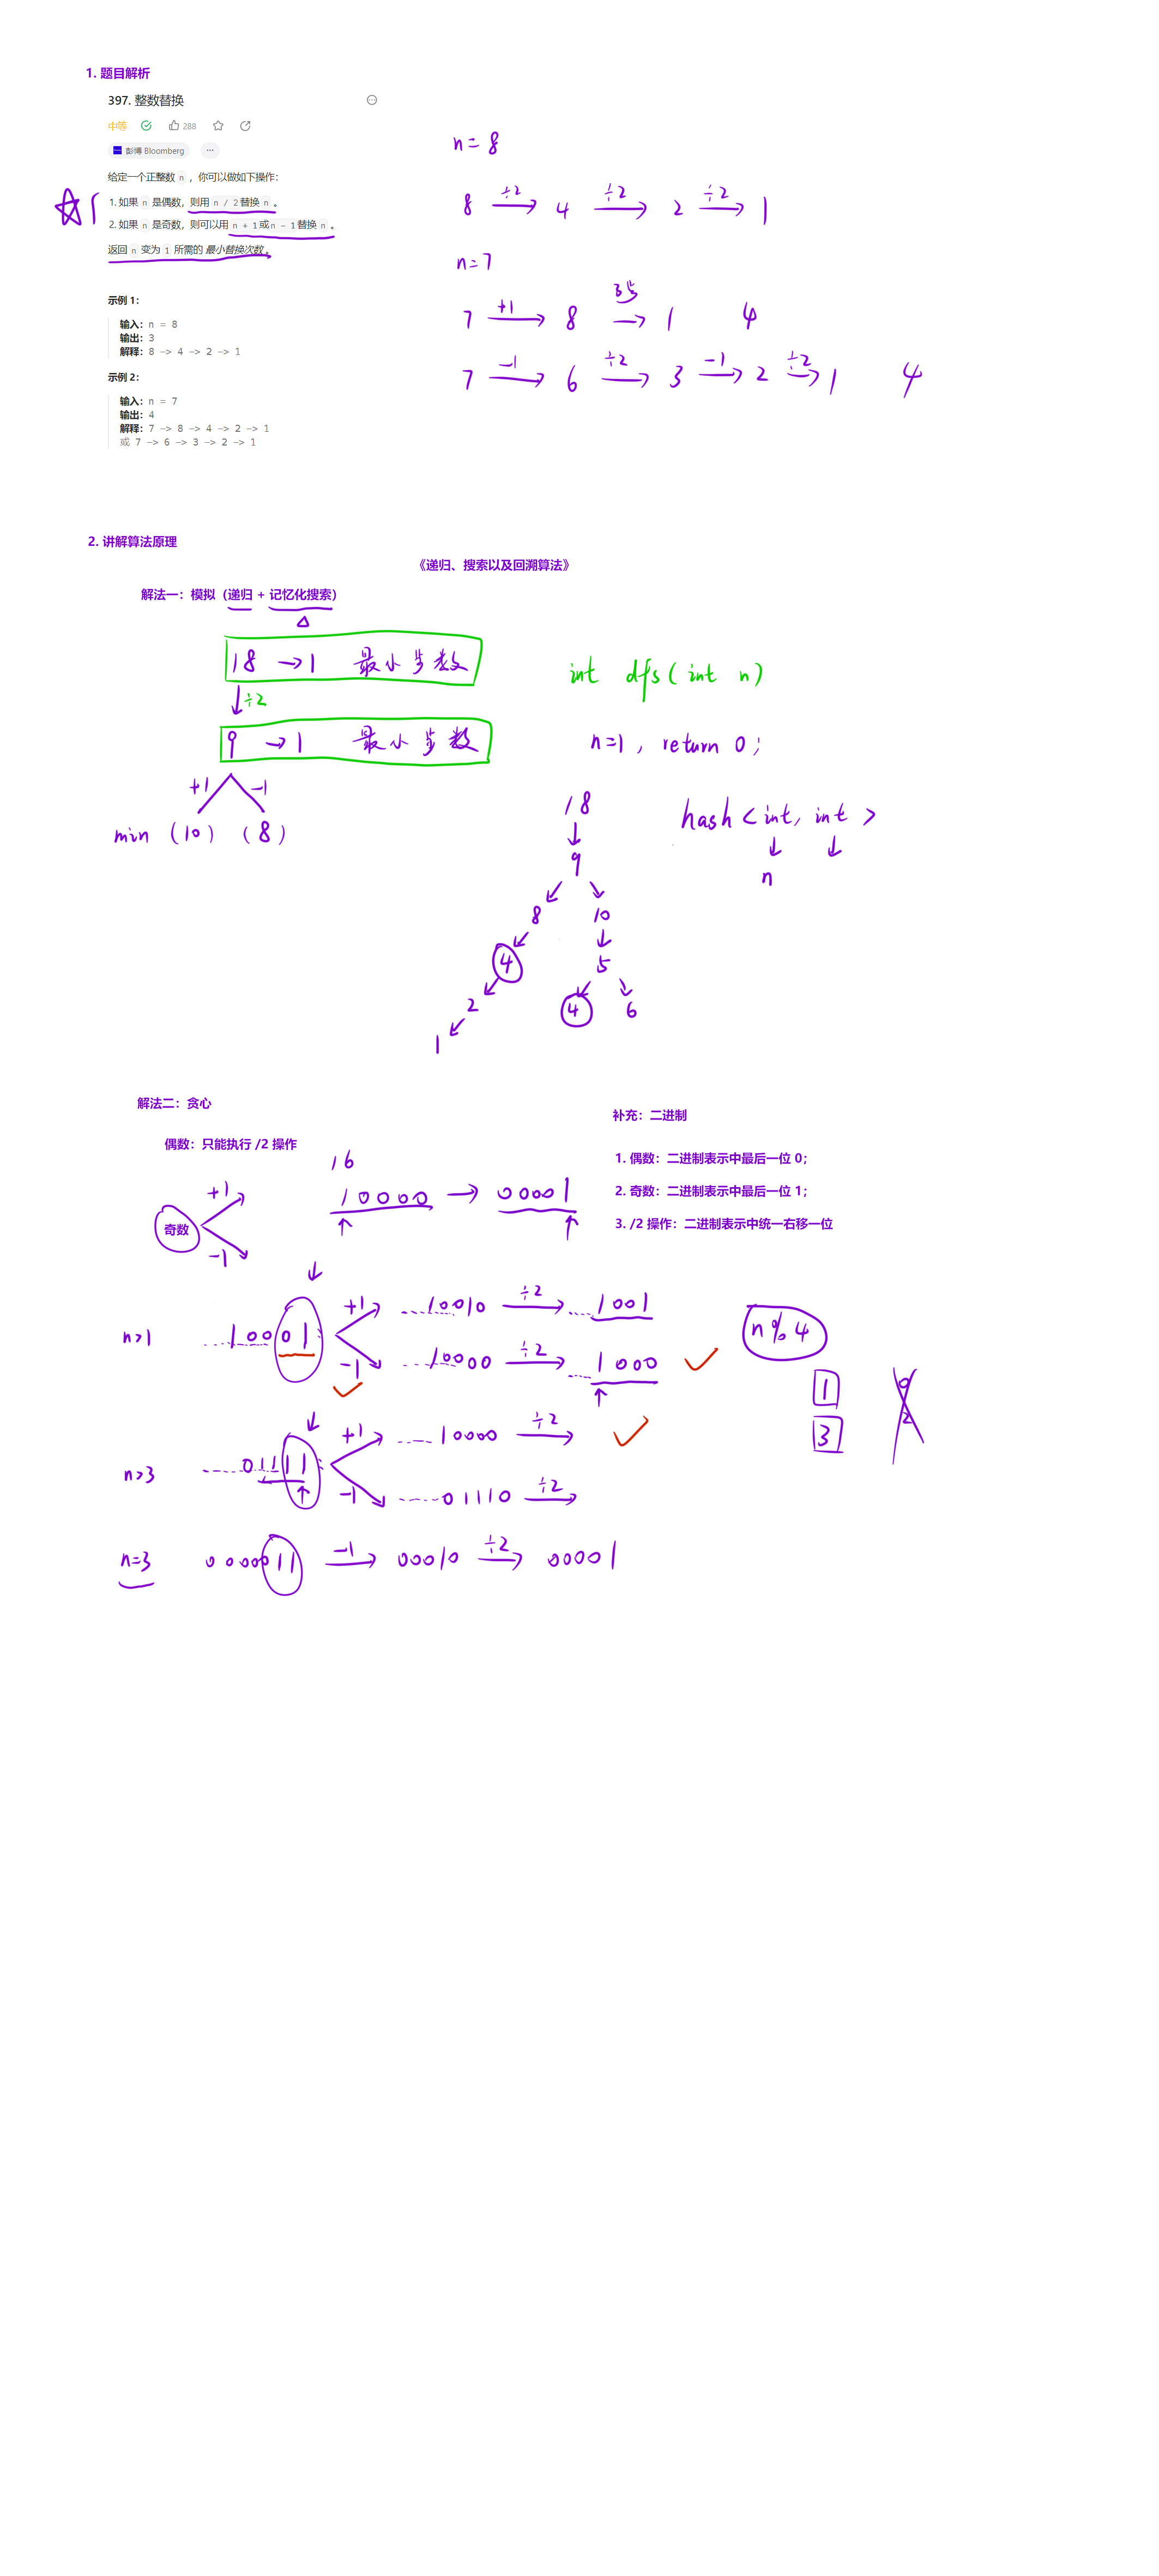 1. 题目解析
397. 整数替换
中等 288
彭博 Bloomberg ...
给定一个正整数 n ，你可以做如下操作：
1. 如果 n 是偶数，则用 n / 2 替换 n 。
2. 如果 n 是奇数，则可以用 n + 1 或 n - 1 替换 n 。
返回 n 变为 1 所需的 最小替换次数 。
示例 1：
输入：n = 8
输出：3
解释：8 -> 4 -> 2 -> 1
示例 2：
输入：n = 7
输出：4
解释：7 -> 8 -> 4 -> 2 -> 1
或 7 -> 6 -> 3 -> 2 -> 1
n = 8
8 ÷2→ 4 ÷2→ 2 ÷2→ 1
n = 7
7 +1→ 8 3步→ 1 4
7 -1→ 6 ÷2→ 3 -1→ 2 ÷2→ 1 4
2. 讲解算法原理
《递归、搜索以及回溯算法》
解法一：模拟（递归 + 记忆化搜索）
18 → 1 最小步数
÷2
9 → 1 最小步数
+1 -1
min (10) (8)
int dfs(int n)
n=1, return 0;
hash<int, int>
n
18
9
8 10
4 5
2 4 6
1
解法二：贪心
偶数：只能执行 /2 操作
奇数 +1 -1
16
10000 → 00001
补充：二进制
1. 偶数：二进制表示中最后一位 0；
2. 奇数：二进制表示中最后一位 1；
3. /2 操作：二进制表示中统一右移一位
n>1 ......10001: +1 ......10010 ÷2→ ......1001
-1 ......10000 ÷2→ ......1000
n % 4
1 0
3 2
n>3 ......01111: +1 ......10000 ÷2→
-1 ......01110 ÷2→
n=3 0000011 -1→ 00010 ÷2→ 00001